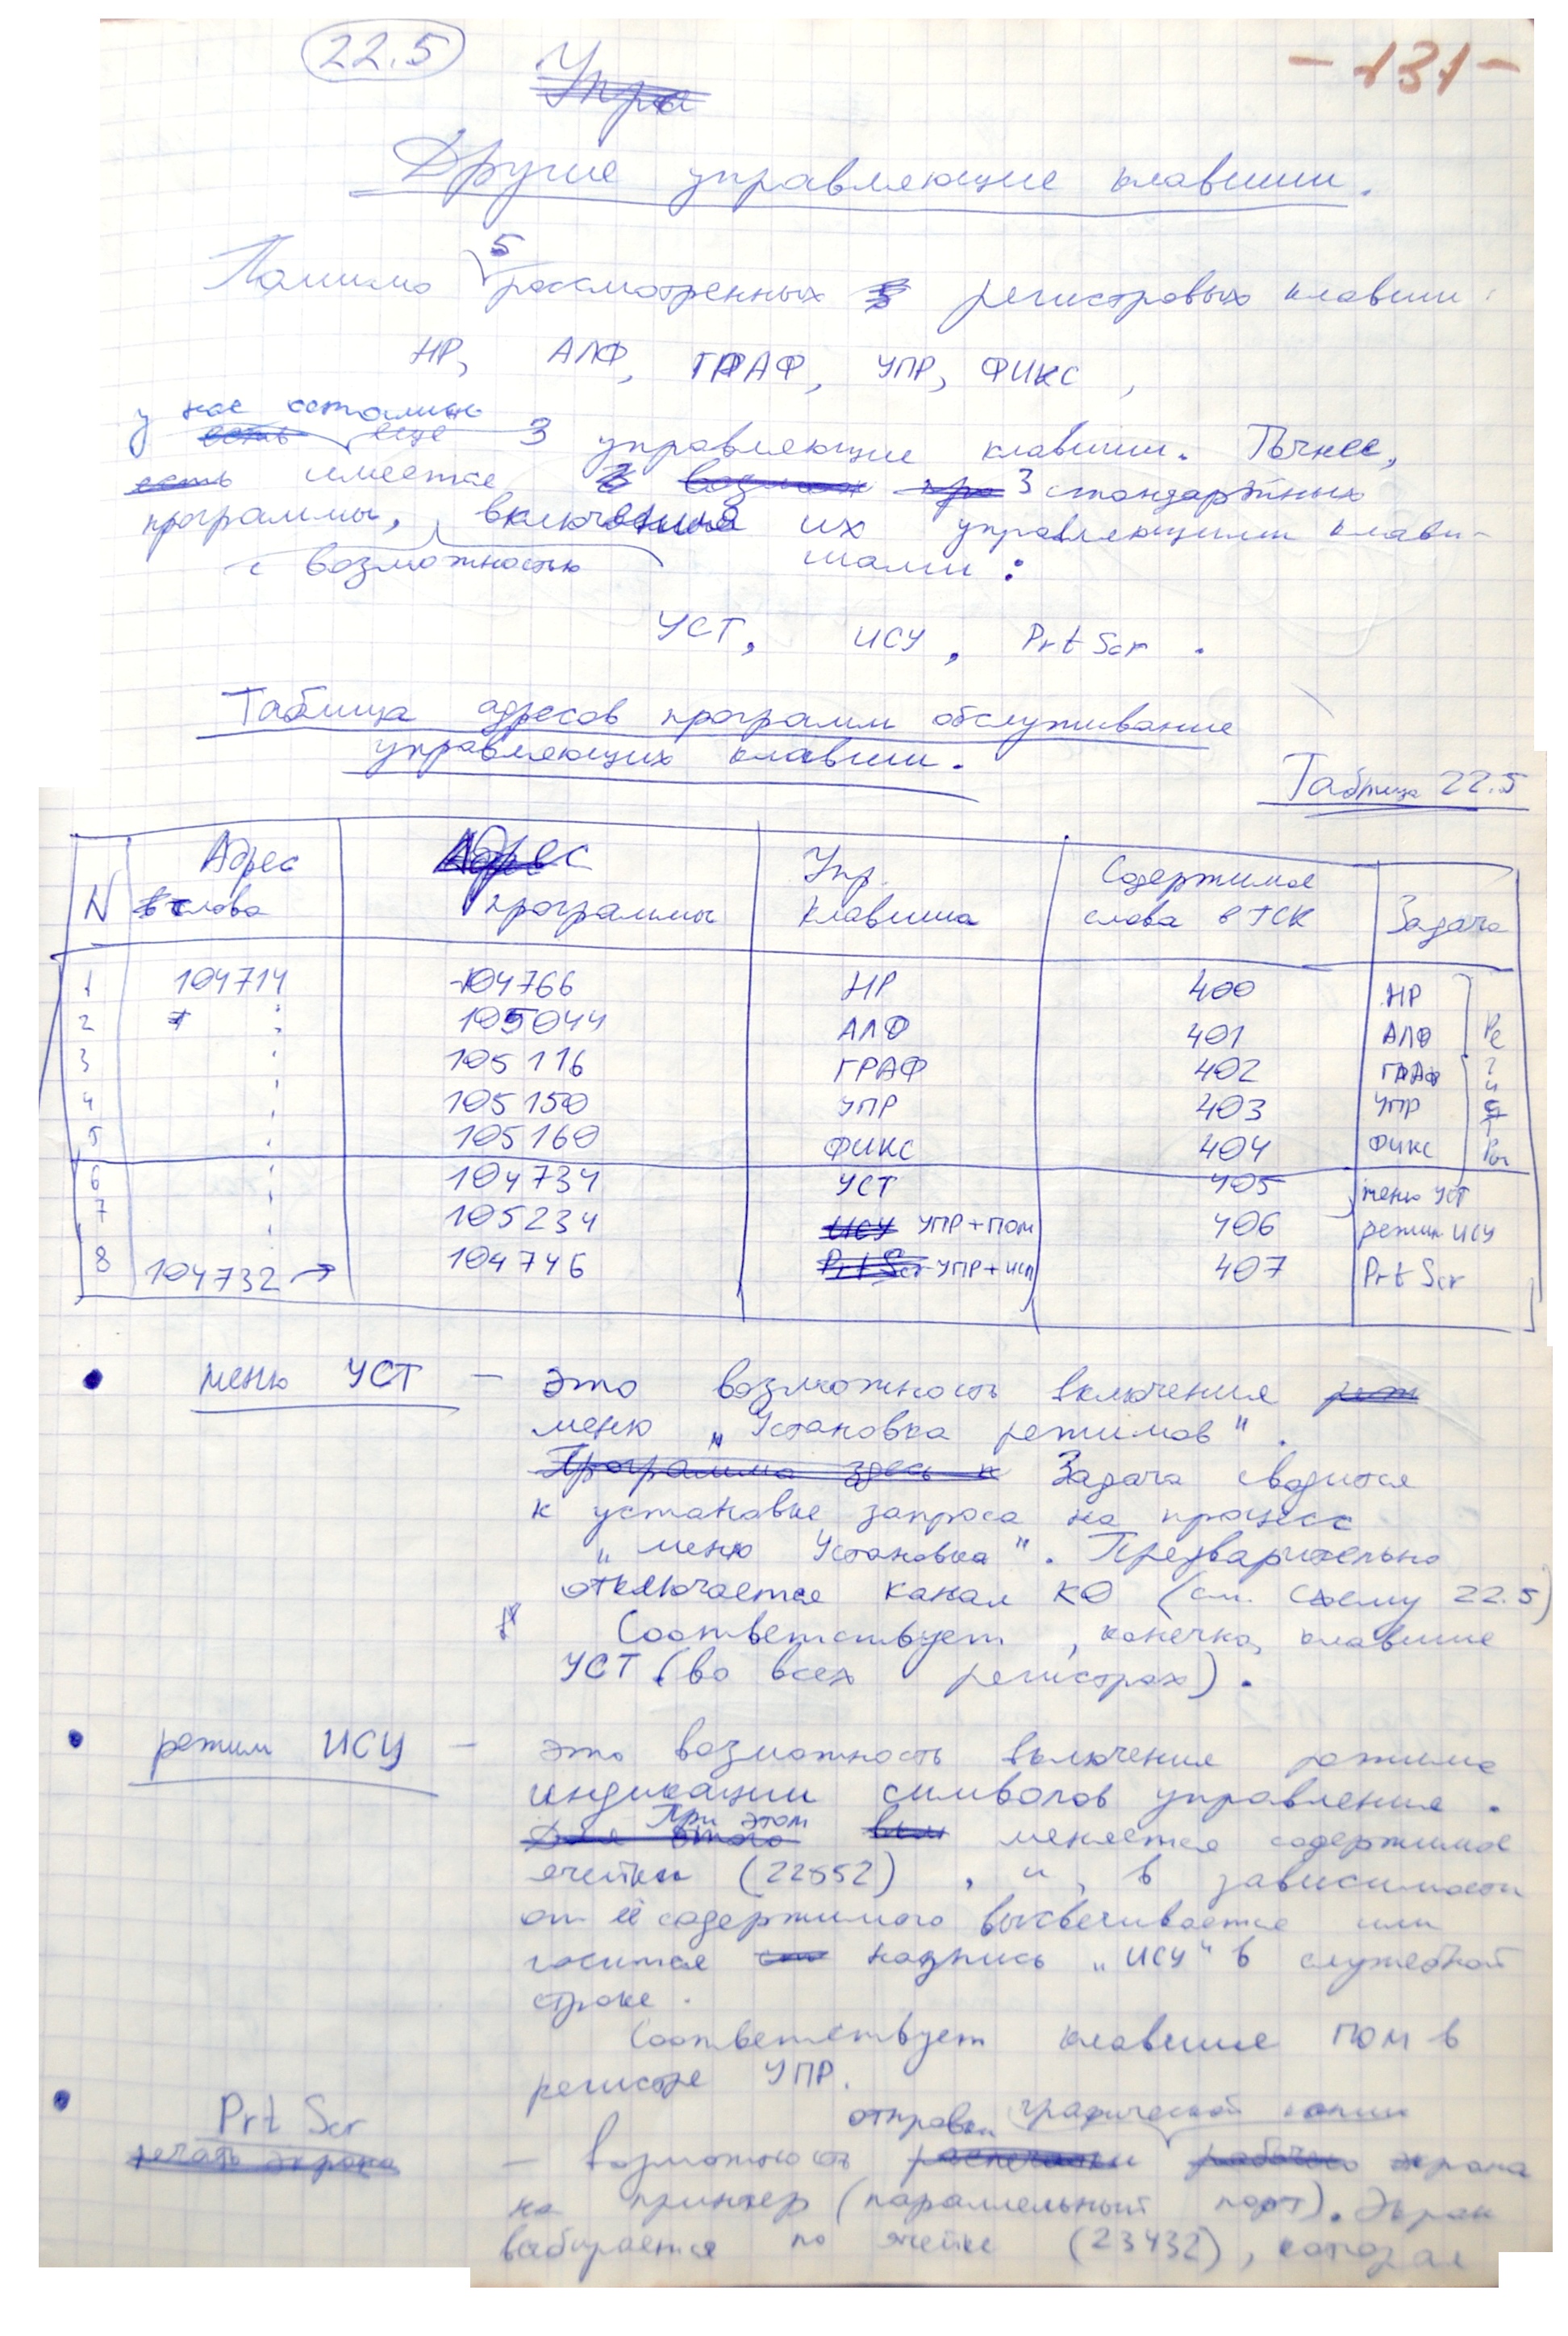 22.5
- 131 -
Упра
Другие управляющие клавиши.
5
Помимо рассмотренных 5 регистровых клавиш:
НР, АЛФ, ГРАФ, УПР, ФИКС,
у нас остались
есть еще 3 управляющие клавиши. Точнее,
есть имеется 3 3 стандартных
программы, включения их управляющими клави-
с возможностью шами:
УСТ, ИСУ, Prt Scr.
Таблица адресов программ обслуживание
управляющих клавиш.
Таблица 22.5
N Адрес слова Адрес программы Упр. клавиша Содержимое слова в ТСК Задача
1 104714 104766 НР 400 НР
2 105044 АЛФ 401 АЛФ
3 105116 ГРАФ 402 ГРАФ
4 105150 УПР 403 УПР
5 105160 ФИКС 404 ФИКС
6 104734 УСТ 405 меню УСТ
7 105234 ИСУ УПР+ПОМ 406 режим ИСУ
8 104732 → 104746 Prt Scr УПР+ИСП 407 Prt Scr
Регистры
• меню УСТ — это возможность включения
меню „Установка режимов".
Программа здесь к Задача сводится
к установке запроса на процесс
„меню Установка". Предварительно
отключается канал К0 (см. схему 22.5)
Соответствует, конечно, клавише
УСТ (во всех регистрах).
• режим ИСУ — это возможность включения режима
индикации символов управления.
При этом
Для этого вкл меняется содержимое
ячейки (22552), и, в зависимости
от её содержимого высвечивается или
гасится надпись „ИСУ" в служебной
строке.
Соответствует клавише ПОМ в
регистре УПР.
отправки графической копии
• Prt Scr
печать экрана — возможность распечатки рабочего экрана
на принтер (параллельный порт). Экран
выбирается по ячейке (23432), которая